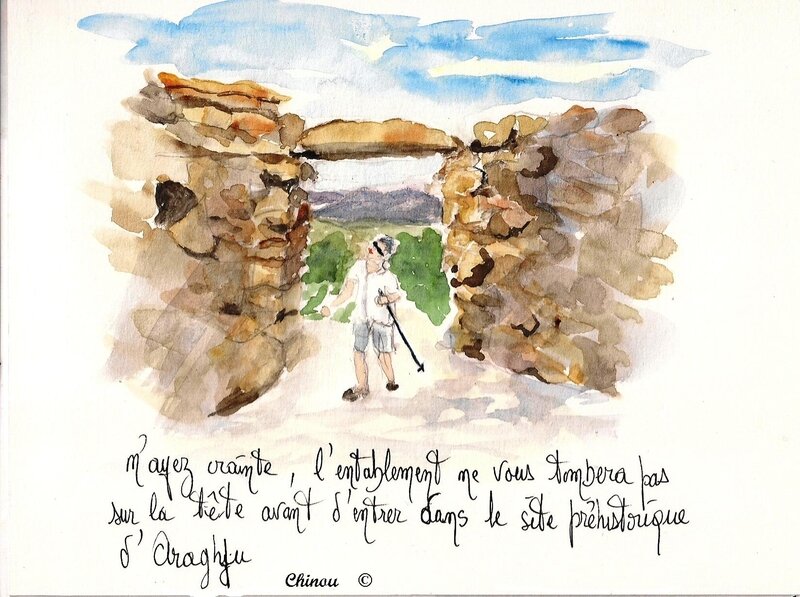 n'ayez crainte, l'entablement ne vous tombera pas
sur la tête avant d'entrer dans le site préhistorique
d'Araghju
Chinou ©